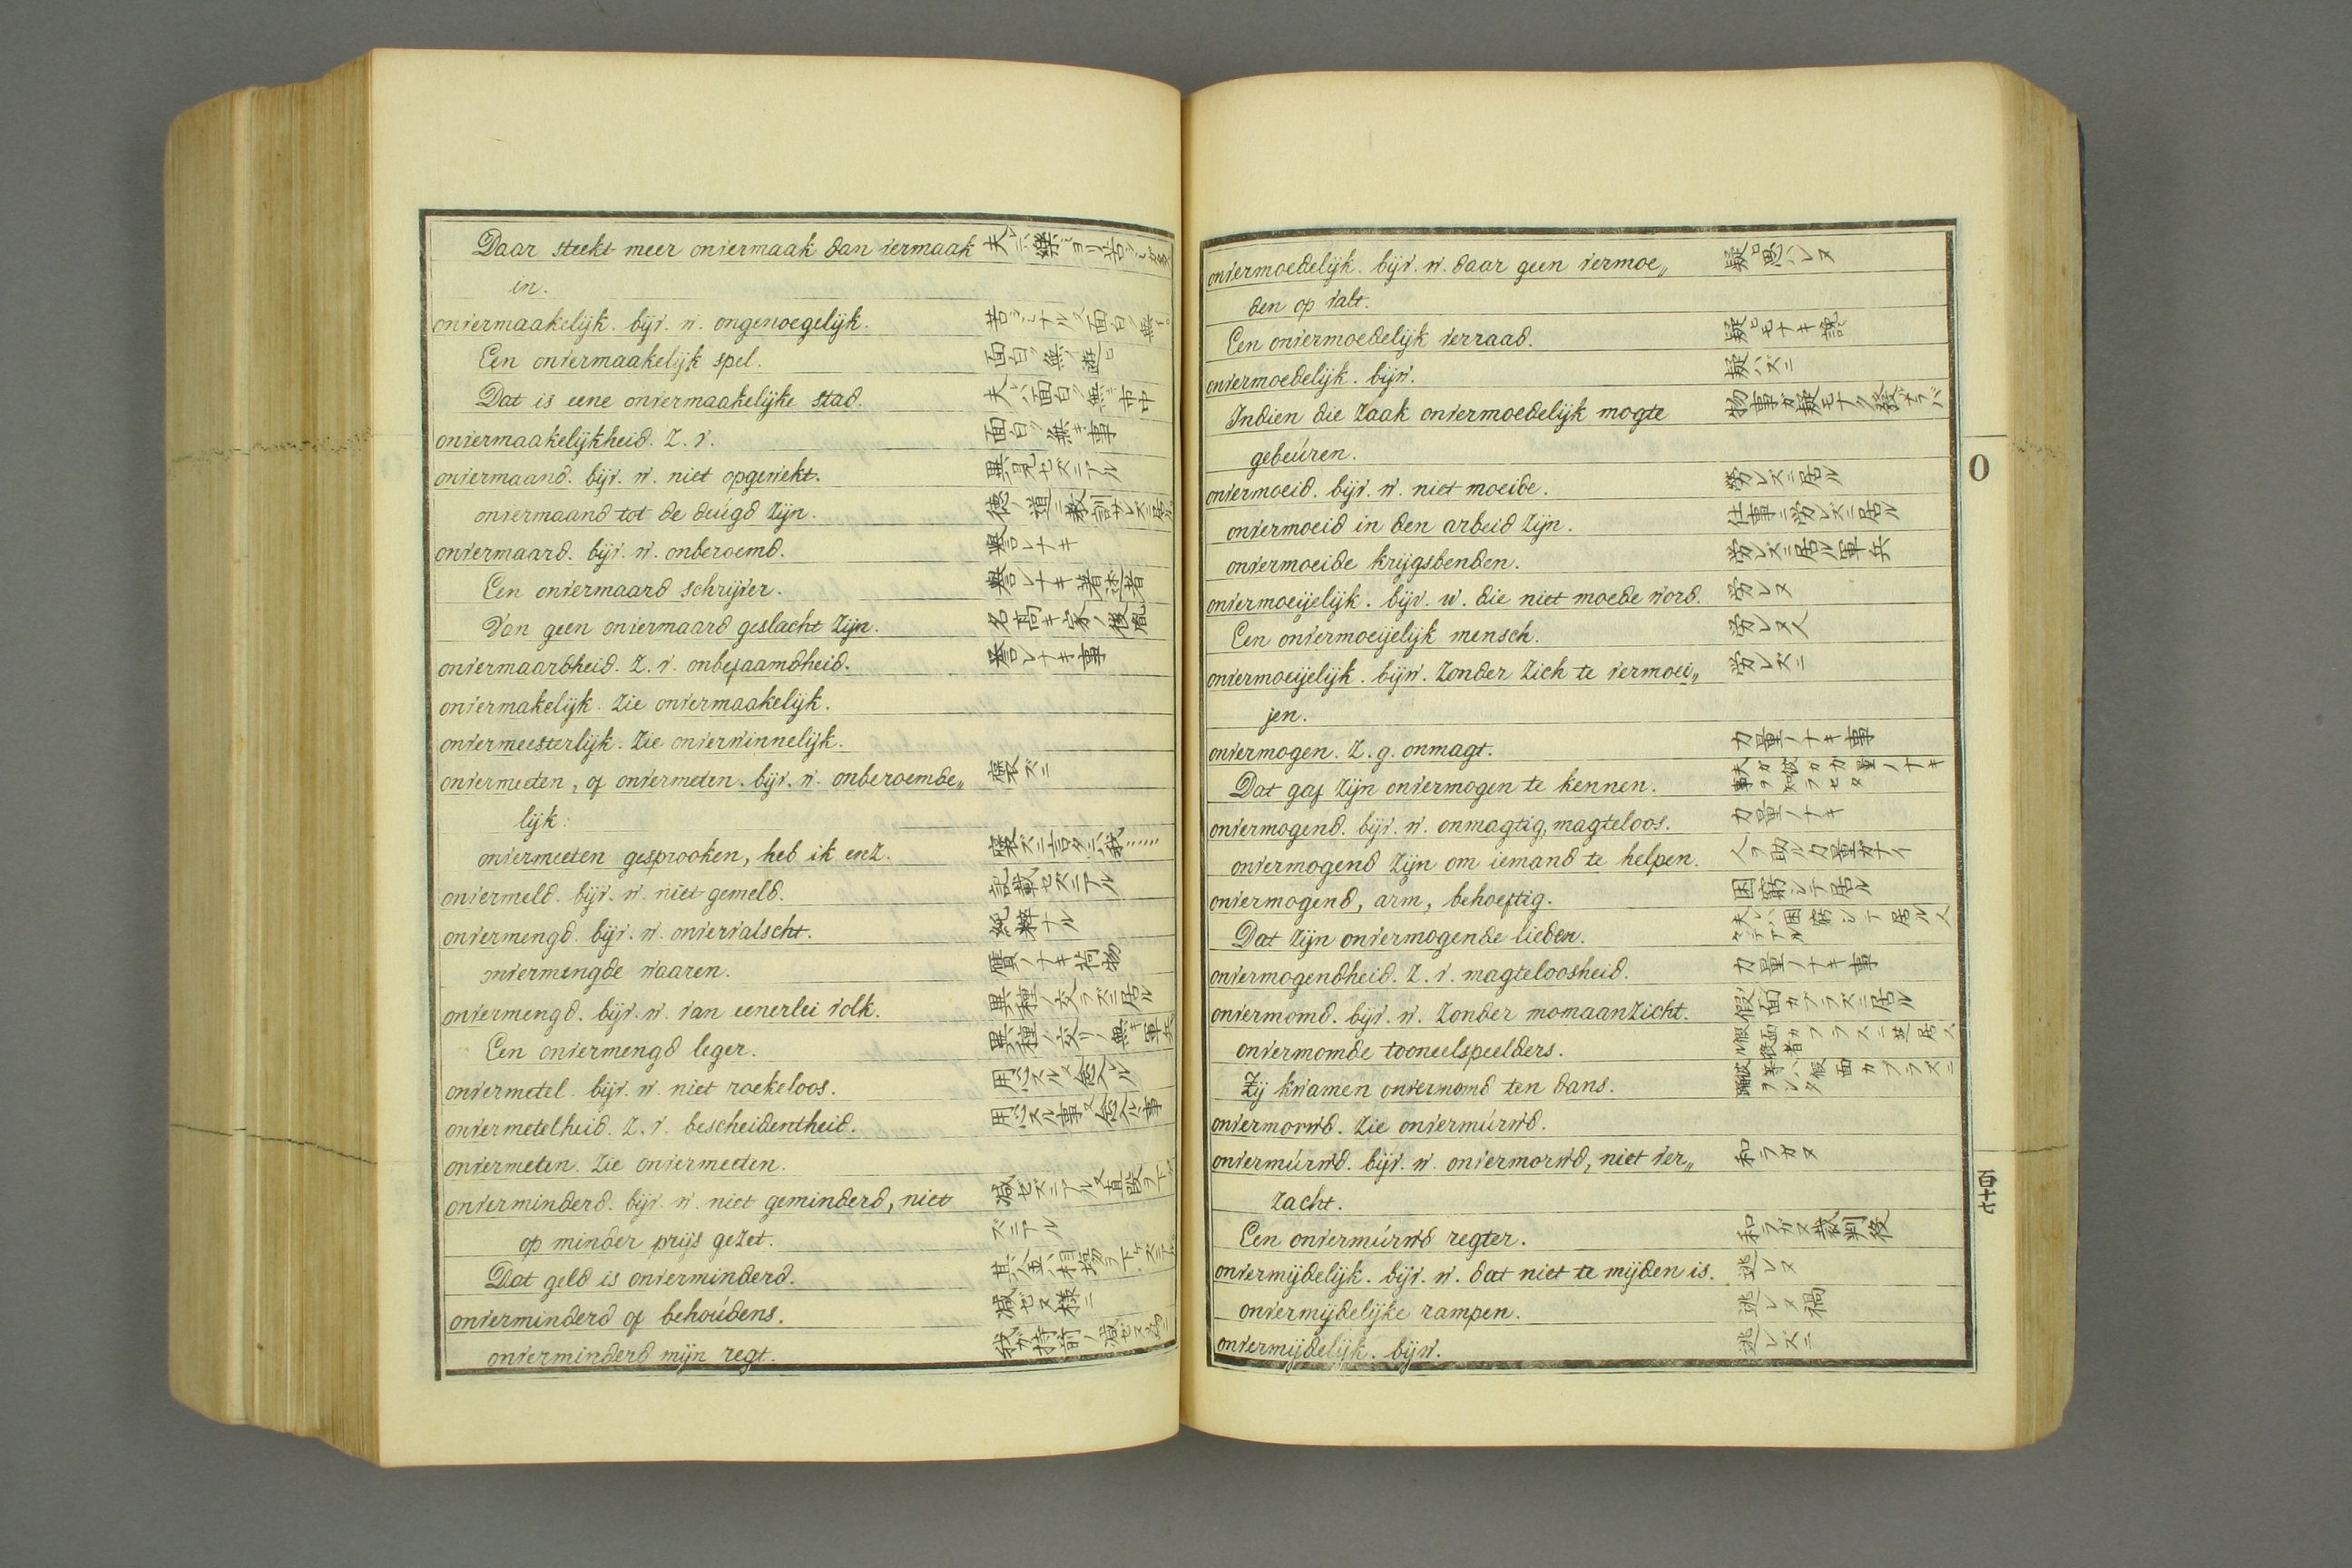 Daar steekt meer onvermaak dan vermaak 夫ニハ樂ヨリ苦シミガ多
in.
onvermaakelijk. bijv. w. ongenoegelijk. 苦シミナル又面白ク無イ
Een onvermaakelijk spel. 面白ク無ノ遊ヒ
Dat is eene onvermaakelijke stad. 夫ハ面白ク無キ市中
onvermaakelijkheid. z. v. 面白ク無キ事
onvermaand. bijv. w. niet opgewekt. セズニアル
onvermaand tot de deúgd zijn. 德ノ道ニ教訓サレズニ居ル
onvermaard. bijv. w. onberoemd. 譽レナキ
Een onvermaard schrijver. 譽レナキ著述者
Van geen onvermaard geslacht zijn. 名高キ家ノ後胤
onvermaardheid. z. v. onbefaamdheid. 譽レナキ事
onvermakelijk. zie onvermaakelijk.
onvermeesterlijk. zie onverwinnelijk.
onvermeeten, of onvermeten. bijv. w. onberoemde„ ズニ
lijk.
onvermeeten gesprooken, heb ik enz. ズニ言タニハ我……
onvermeld. bijv. w. niet gemeld. 記載セズニアル
onvermengd. bijv. w. onvervalscht. 純粹ナル
onvermengde waaren. 贋ノナキ荷物
onvermengd. bijv. w. van eenerlei volk. 異種ノ交ラズニ居ル
Een onvermengd leger. 異種ノ交リノ無キ軍兵
onvermetel. bijv. w. niet roekeloos. 用心スル又念入ル
onvermetelheid. z. v. bescheidentheid. 用心スル事又念入ル事
onvermeten. zie onvermeeten.
onverminderd. bijv. w. niet geminderd, niet 减セズニアル又直段ヲ下ケ
op minder prijs gezet. ズニアル
Dat geld is onverminderd. 其金ハ相場ヲ下ケズニアル
onverminderd of behoúdens. 减ゼヌ様ニ
onverminderd mijn regt. 我ガ持前ノ减ゼヌ為ニ
onvermoedelijk. bijv. w. daar geen vermoe„ 疑ヒ思ハレヌ
den op valt.
Een onvermoedelijk verraad. 疑ヒモナキ
onvermoedelijk. bijw. 疑ハズニ
Indien die zaak onvermoedelijk mogte 物事ガ疑モナク發オラバ
gebeúren.
onvermoeid. bijv. w. niet moeide. 勞レズニ居ル
onvermoeid in den arbeid zijn. 仕事ニ労レズニ居ル
onvermoeide krijgsbenden. 労レズニ居ル軍兵
onvermoeijelijk. bijv. w. die niet moede word. 労レヌ
Een onvermoeijelijk mensch. 労レヌ人
onvermoeijelijk. bijw. zonder zich te vermoei„ 労レズニ
jen.
onvermogen. z. g. onmagt. 力量ノナキ事
Dat gaf zijn onvermogen te kennen. 夫ガ彼カ力量ノナキ事ヲ知ラセタ
onvermogend. bijv. w. onmagtig, magteloos. 力量ノナキ
onvermogend zijn om iemand te helpen. 人ヲ助ル力量ガナイ
onvermogend, arm, behoeftig. 困窮シテ居ル
Dat zijn onvermogende lieden. 夫レハ困窮シテ居ル人々デアル
onvermogendheid. z. v. magteloosheid. 力量ノナキ事
onvermomd. bijv. w. zonder momaanzicht. 假面カブラズニ居ル
onvermomde tooneelspeelders. 假面カブラスニ芝居スル役者
Zij kwamen onvermomd ten dans. 彼等ハ假面カブラズニ踊ヲシタ
onvermorwd. zie onvermúrwd.
onvermúrwd. bijv. w. onvermorwd, niet ver„ 和ラガヌ
zacht.
Een onvermúrwd regter. 和ラガヌ裁判役
onvermijdelijk. bijv. w. dat niet te mijden is. 逃レヌ
onvermijdelijke rampen. 逃レヌ禍
onvermijdelijk. bijw. 逃レズニ
O
百十七